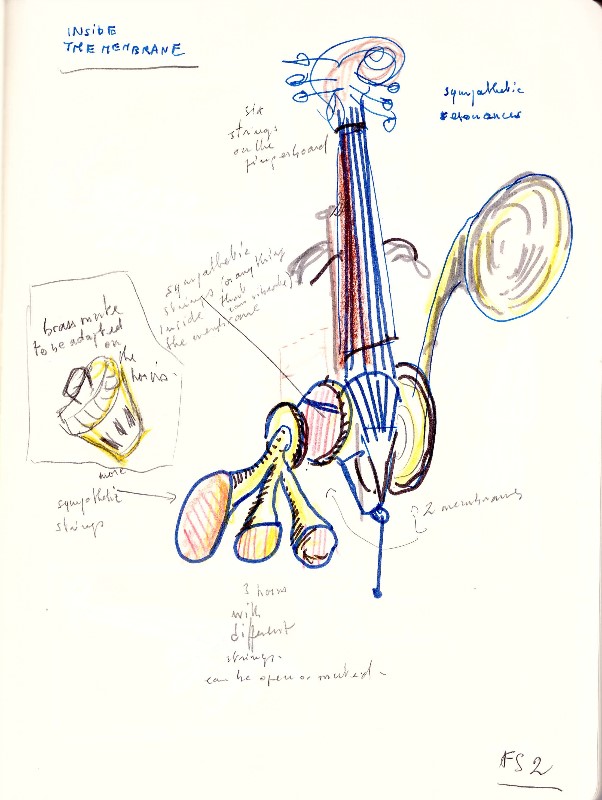 INSIDE
THE MEMBRANE
sympathetic
resonances
six
strings
on the
fingerboard
sympathetic
strings or anything
that
inside
the membrane
brass mute
to be adapted
on
the
horns.
more
sympathetic
strings
2 membranes
3 horns
with
different
strings.
can be open or muted.
FS 2